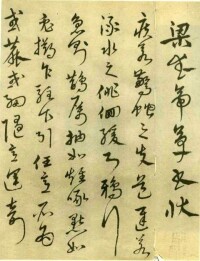 梁武帝草書狀
疾若驚蛇之失道遲若
淥水之徘徊緩則鴉行
急則鵲厲抽如雉啄點如
兔擲乍駐乍引任意所為
或麤或細隨態運奇